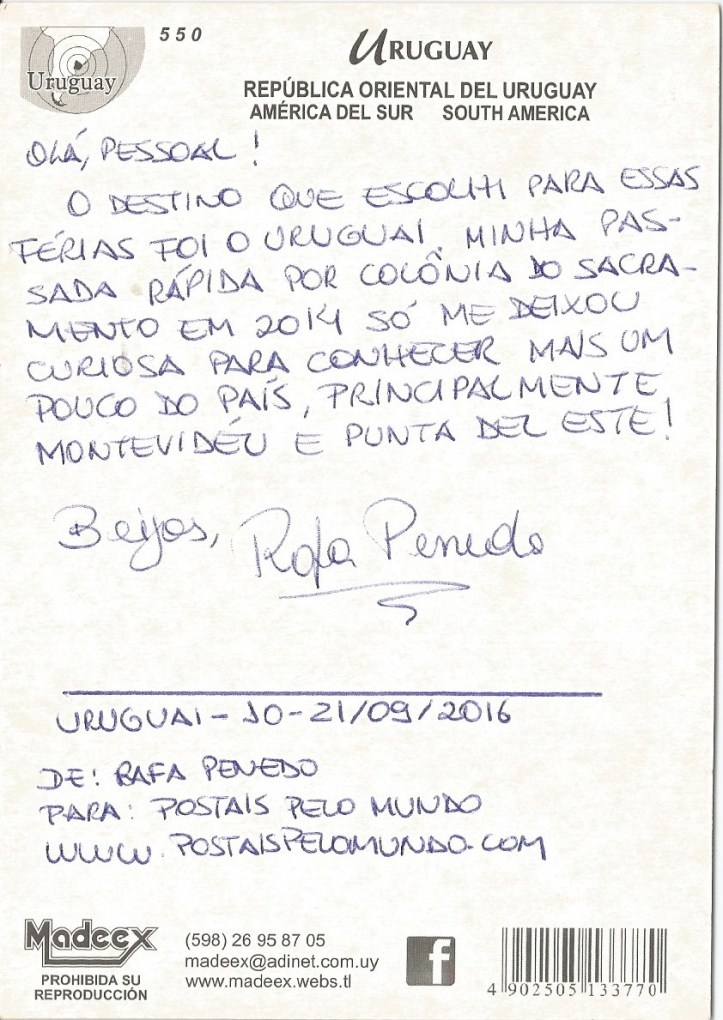 Uruguay
550
URUGUAY
REPÚBLICA ORIENTAL DEL URUGUAY
AMÉRICA DEL SUR SOUTH AMERICA
OLÁ, PESSOAL!
O DESTINO QUE ESCOLHI PARA ESSAS
FÉRIAS FOI O URUGUAI. MINHA PAS-
SADA RÁPIDA POR COLÔNIA DO SACRA-
MENTO EM 2014 SÓ ME DEIXOU
CURIOSA PARA CONHECER MAIS UM
POUCO DO PAÍS, PRINCIPALMENTE,
MONTEVIDÉU E PUNTA DEL ESTE!
Beijos, Rafa Penedo
URUGUAI - 10-21/09/2016
DE: RAFA PENEDO
PARA: POSTAIS PELO MUNDO
WWW.POSTAISPELOMUNDO.COM
Madeex
PROHIBIDA SU
REPRODUCCIÓN
(598) 26 95 87 05
madeex@adinet.com.uy
www.madeex.webs.tl
f
4 902505 133770